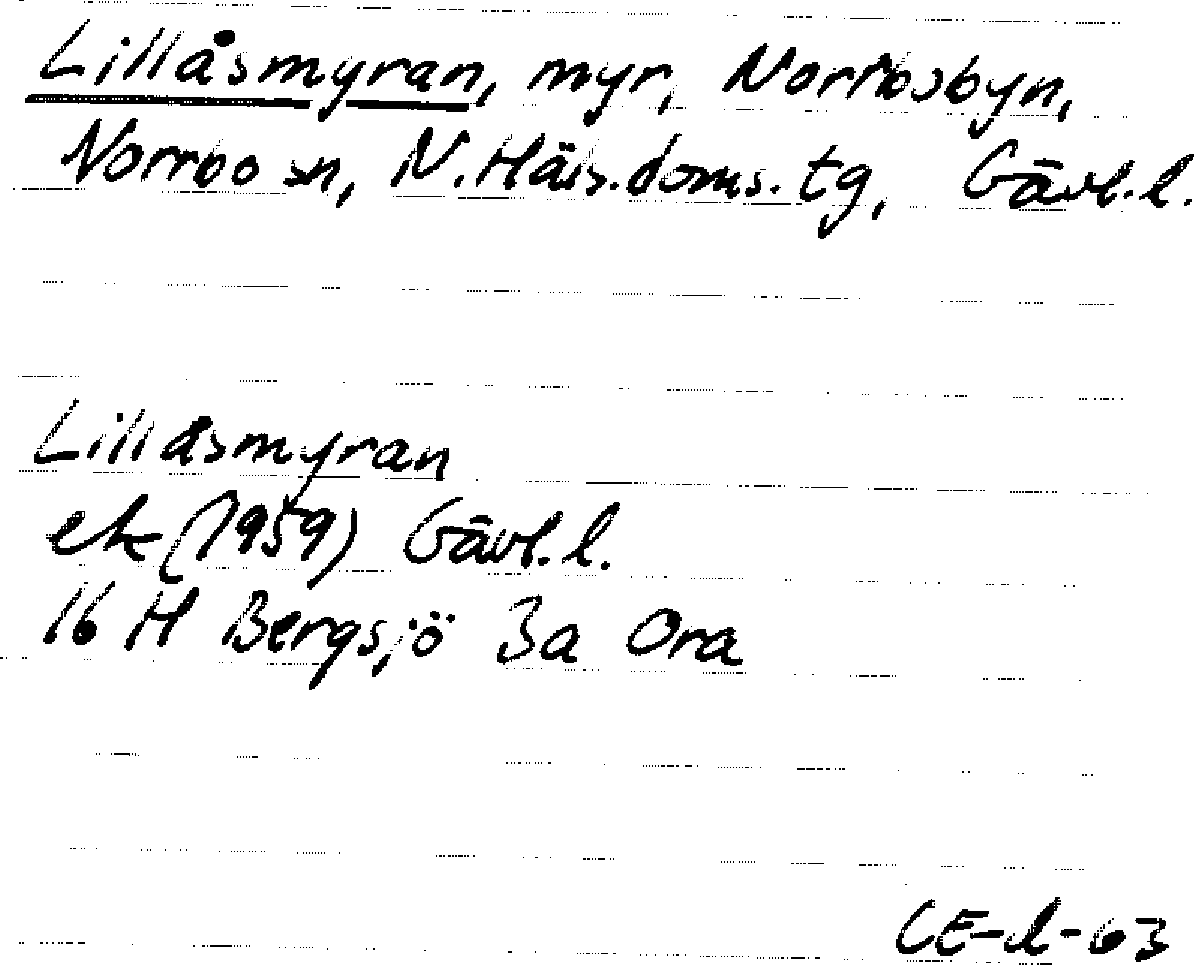 Lillåsmyran, myr, Norrbobyn,
Norrbo sn, N. Häls. doms. tg, Gävl. l.
Lillåsmyran
ek (1959) Gävl. l.
16 H Bergsjö 3a Ora
CE-l-63